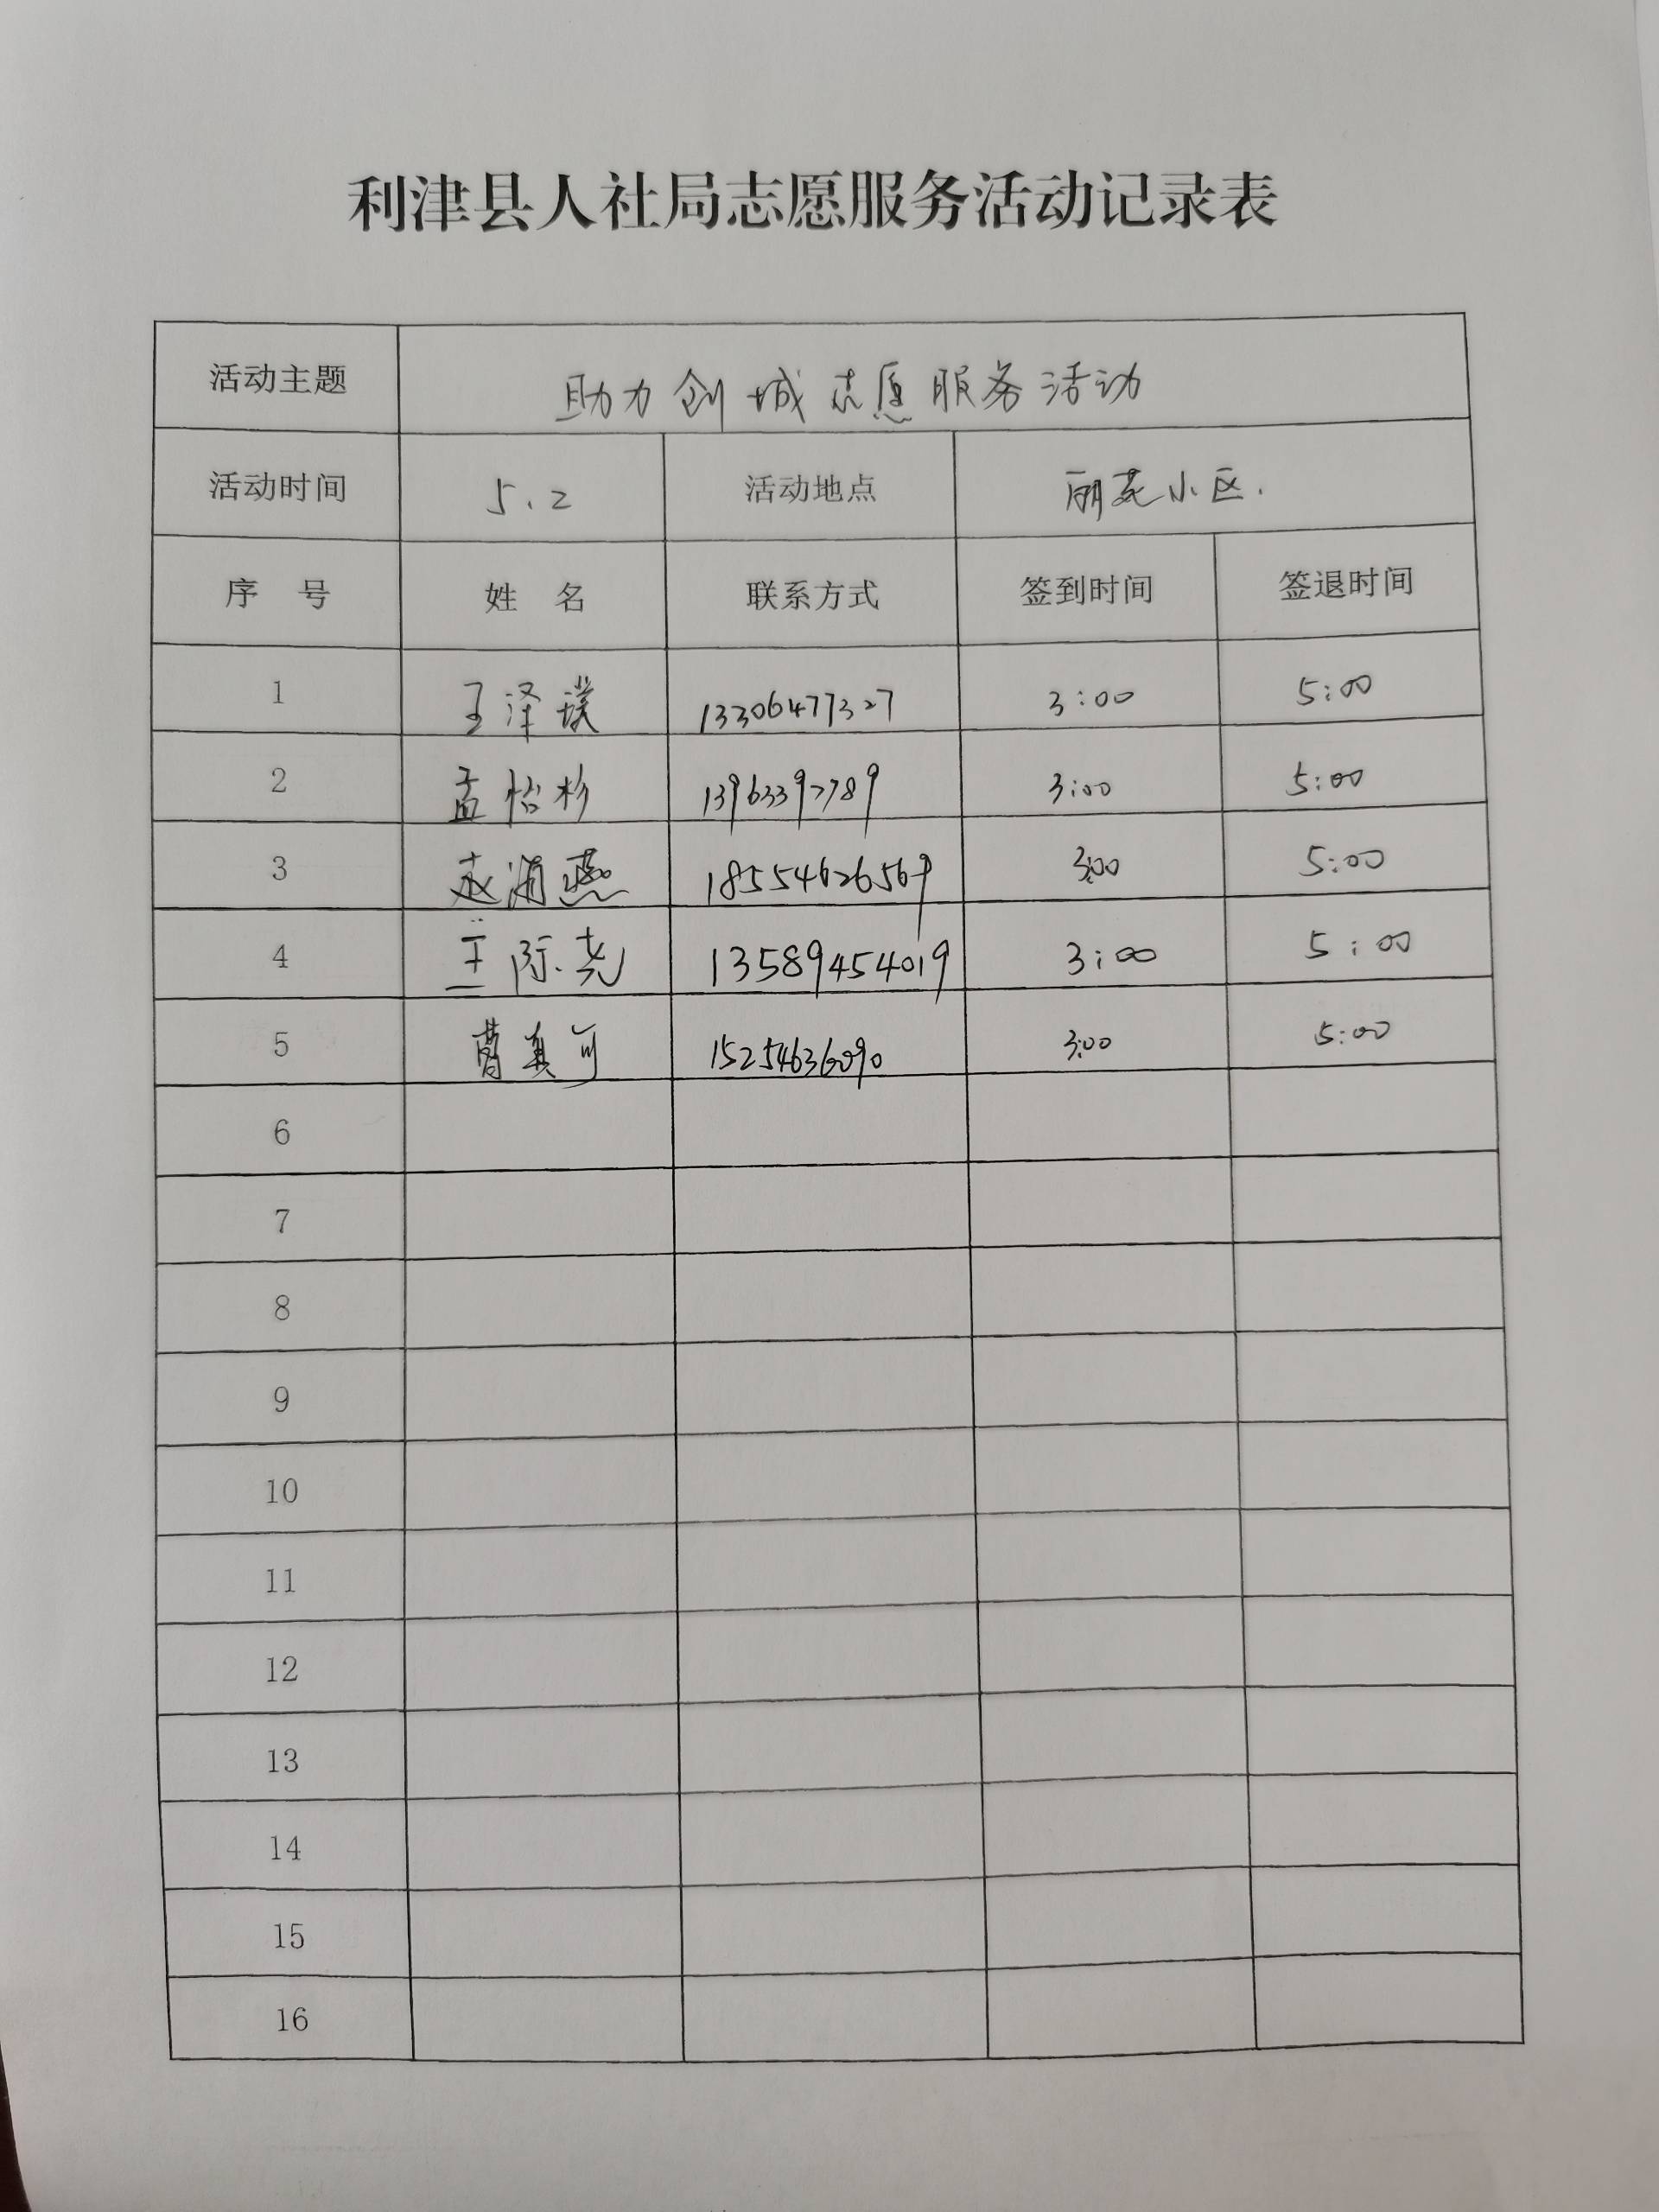 利津县人社局志愿服务活动记录表
活动主题 助力创城志愿服务活动
活动时间 5.2 活动地点 丽苑小区.
序 号 姓 名 联系方式 签到时间 签退时间
1 王泽璞 13306477327 3:00 5:00
2 孟怡杉 13963392789 3:00 5:00
3 赵海燕 18554626569 3:00 5:00
4 王际尧 13589454019 3:00 5:00
5 曹真可 15254636090 3:00 5:00
6
7
8
9
10
11
12
13
14
15
16